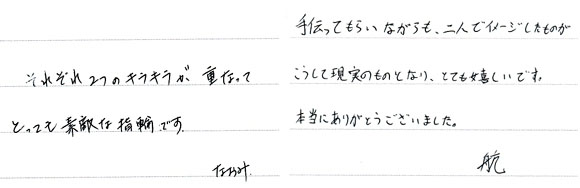 それぞれ2つのキラキラが、重なって
とっても素敵な指輪です。
なおみ.
手伝ってもらいながらも、二人でイメージしたものが
こうして現実のものとなり、とても嬉しいです。
本当にありがとうございました。
航